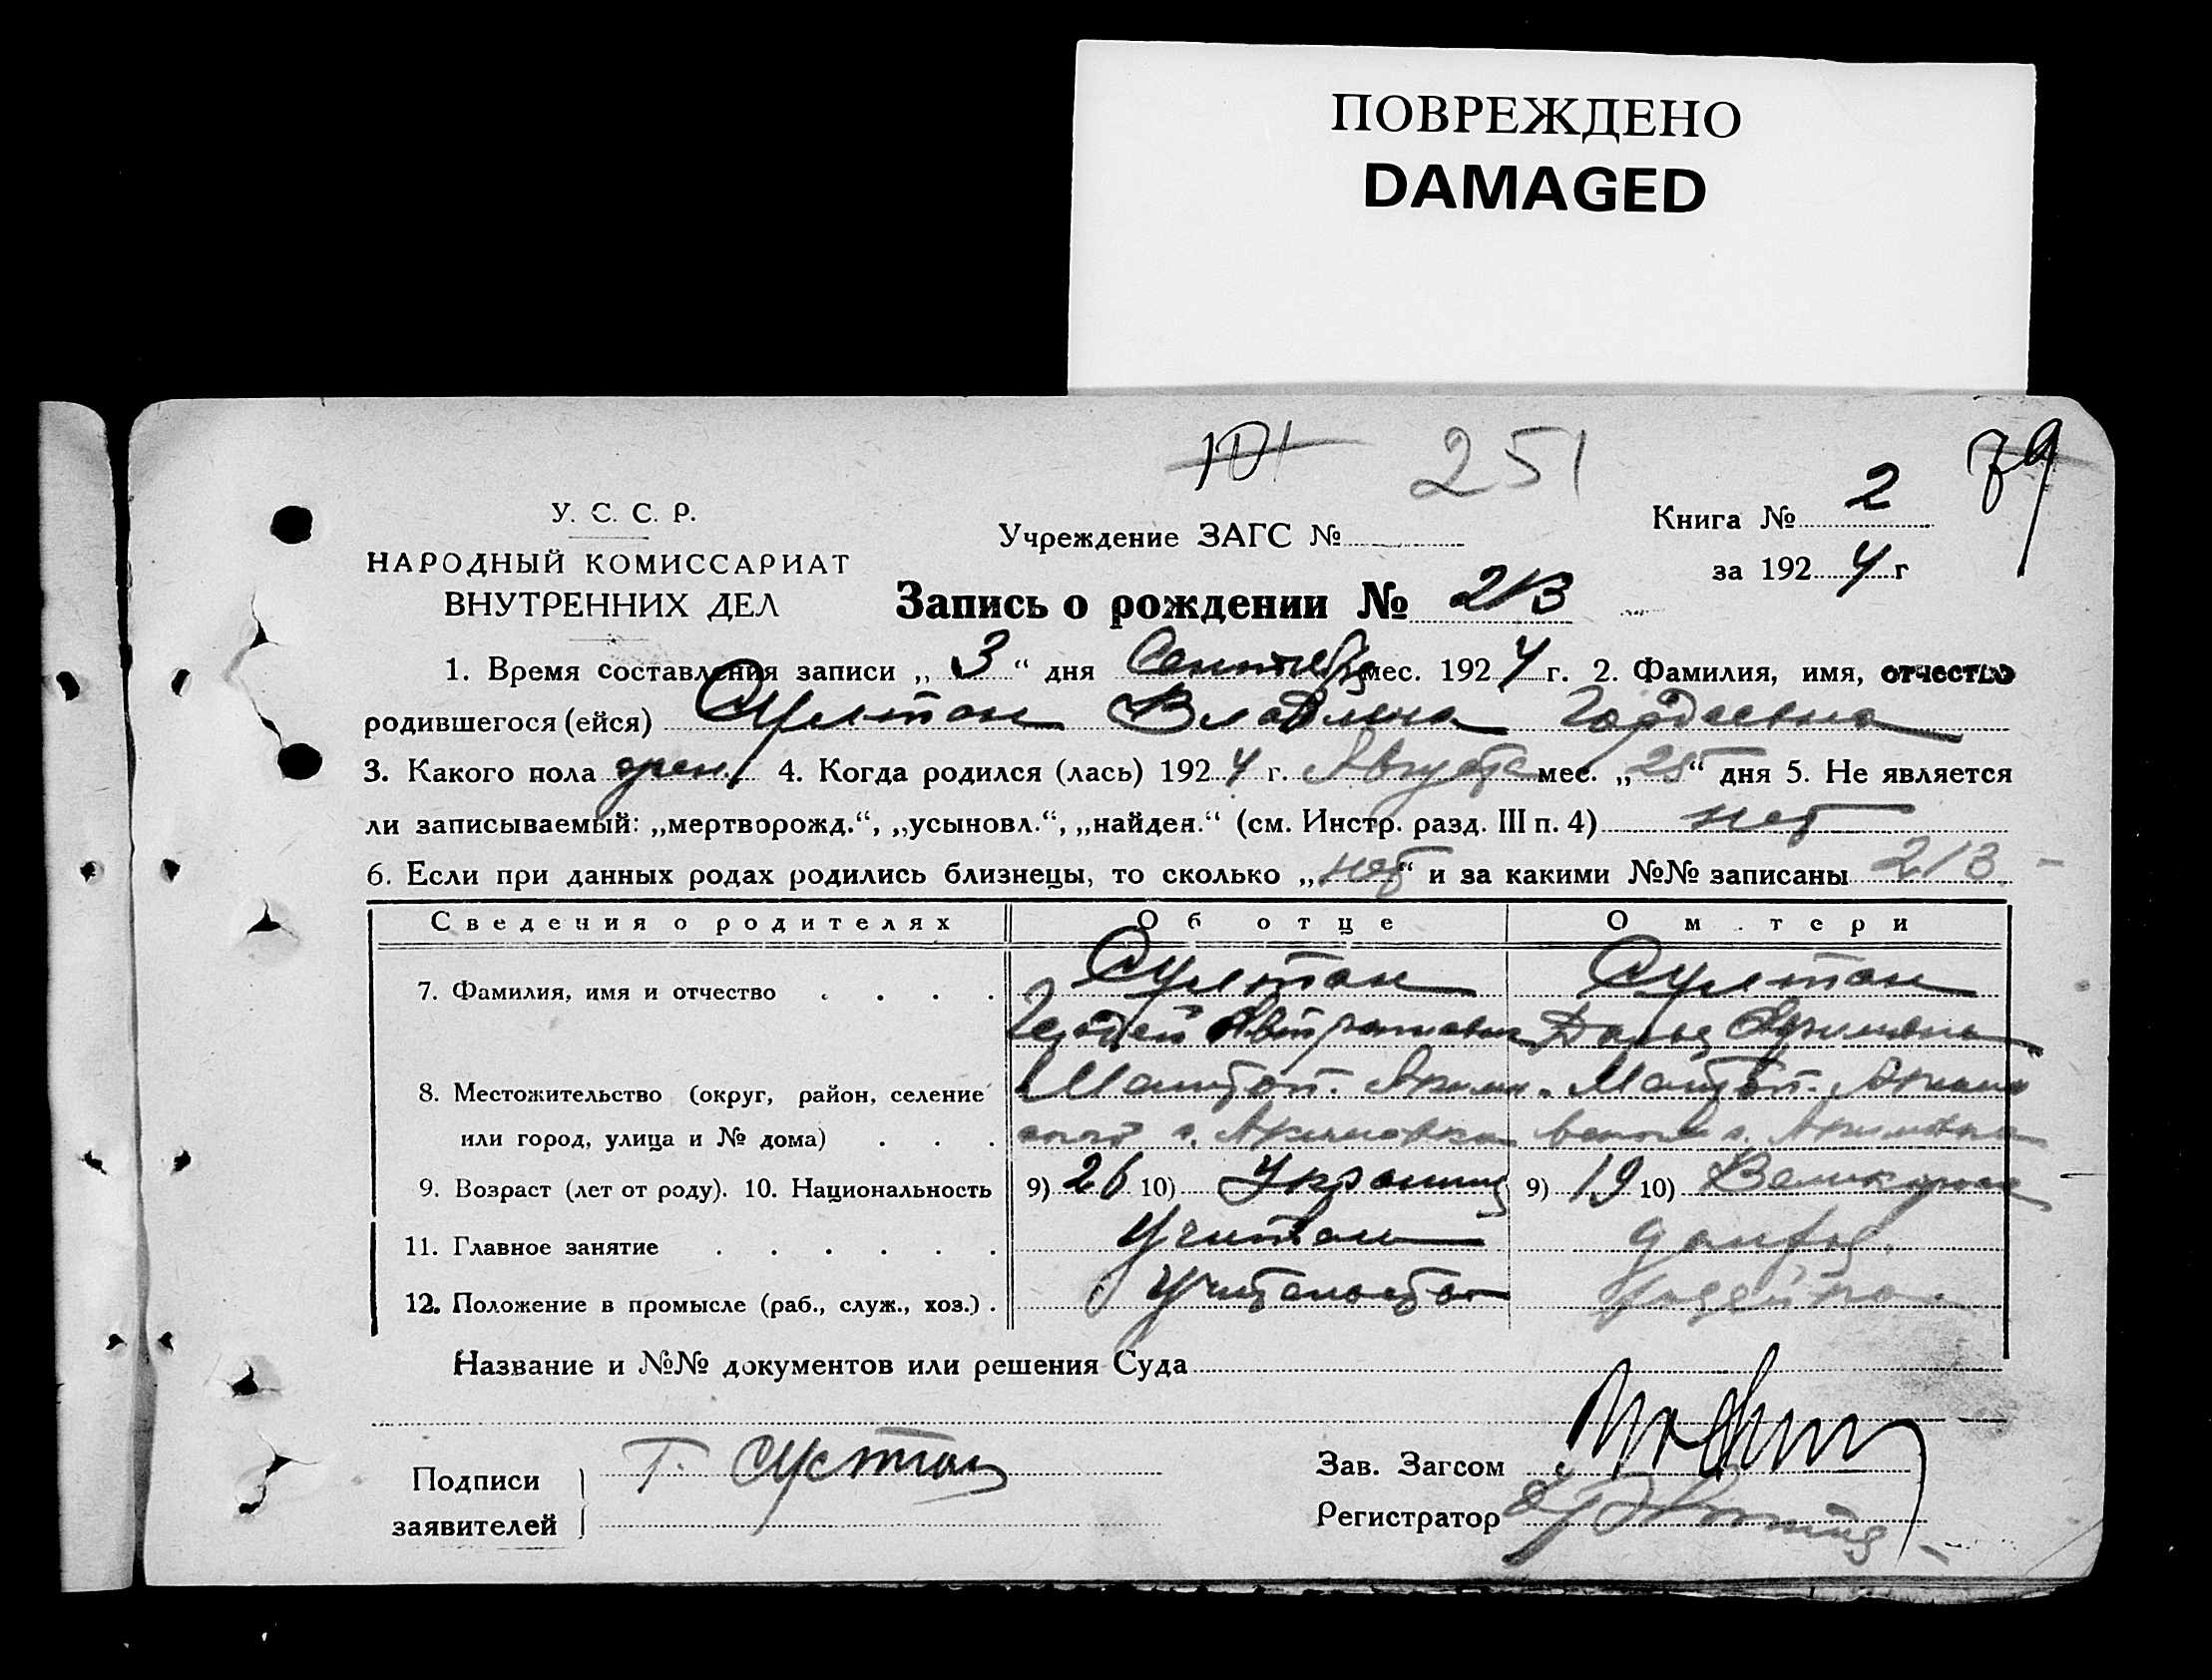 ПОВРЕЖДЕНО
DAMAGED
101 251 79
У. С. С. Р.
НАРОДНЫЙ КОМИССАРИАТ
ВНУТРЕННИХ ДЕЛ
Учреждение ЗАГС №
Книга № 2
за 1924 г
Запись о рождении № 213
1. Время составления записи „3“ дня Сентября мес. 1924 г. 2. Фамилия, имя, отчество
родившегося (ейся) Султан Владлена Гордеевна
3. Какого пола жен. 4. Когда родился (лась) 1924 г. Августа мес. „25“ дня 5. Не является
ли записываемый: „мертворожд.“, „усыновл.“, „найден.“ (см. Инстр. разд. III п. 4) нет
6. Если при данных родах родились близнецы, то сколько „нет“ и за какими №№ записаны 213
Сведения о родителях Об отце О м тери
7. Фамилия, имя и отчество Султан Султан
Гордей Дарья
8. Местожительство (округ, район, селение
или город, улица и № дома) с. Акимовка с. Акимовка
9. Возраст (лет от роду). 10. Национальность 9) 26 10) Украинец 9) 19 10)
11. Главное занятие Учитель
12. Положение в промысле (раб., служ., хоз.)
Название и №№ документов или решения Суда
Подписи
заявителей
Г. Султан
Зав. Загсом
Регистратор